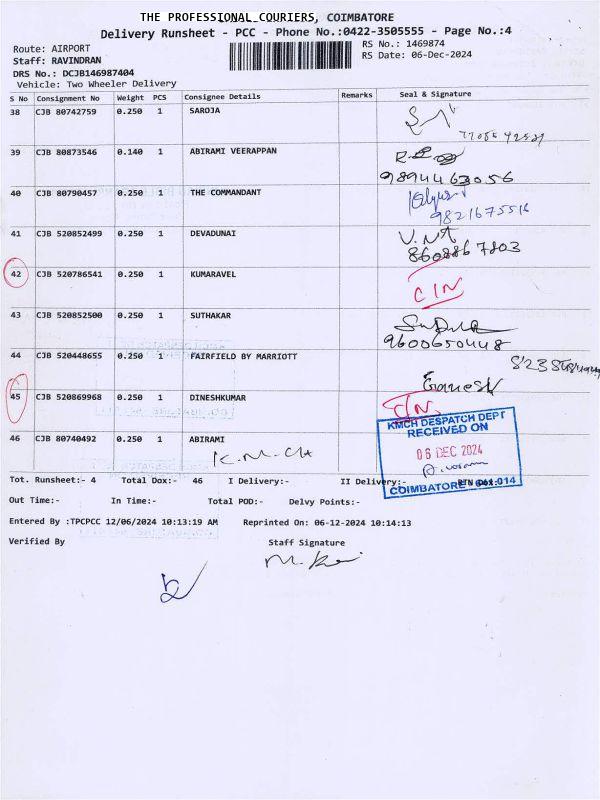 THE PROFESSIONAL COURIERS, COIMBATORE
Delivery Runsheet - PCC - Phone No.:0422-3505555 - Page No.:4
Route: AIRPORT
RS No.: 1469874
Staff: RAVINDRAN
RS Date: 06-Dec-2024
DRS No.: DCJB146987404
Vehicle: Two Wheeler Delivery
S No Consignment No Weight PCS Consignee Details Remarks Seal & Signature
38 CJB 80742759 0.250 1 SAROJA
39 CJB 80873546 0.140 1 ABIRAMI VEERAPPAN
9894463056
40 CJB 80790457 0.250 1 THE COMMANDANT
9821675516
41 CJB 520852499 0.250 1 DEVADUNAI
8608867803
42 CJB 520786541 0.250 1 KUMARAVEL
CIN
43 CJB 520852500 0.250 1 SUTHAKAR
9600650448
44 CJB 520448655 0.250 1 FAIRFIELD BY MARRIOTT
Ganesh
45 CJB 520869968 0.250 1 DINESHKUMAR
CIN
KMCH DESPATCH DEPT
RECEIVED ON
06 DEC 2024
COIMBATORE - 641 014
46 CJB 80740492 0.250 1 ABIRAMI
K.M.CH
Tot. Runsheet:- 4 Total Dox:- 46 I Delivery:- II Delivery:- RTN Dox:-
Out Time:- In Time:- Total POD:- Delvy Points:-
Entered By :TPCPCC 12/06/2024 10:13:19 AM Reprinted On: 06-12-2024 10:14:13
Verified By Staff Signature